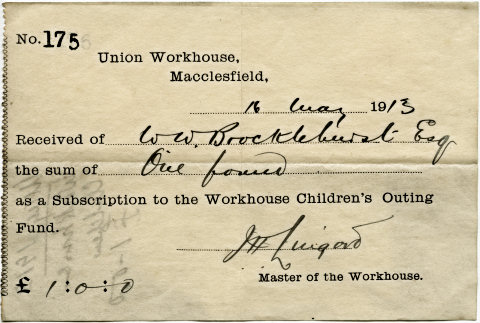 No. 175
Union Workhouse,
Macclesfield,
16 May 1913
Received of W. W. Brocklehurst Esq
the sum of One pound
as a Subscription to the Workhouse Children's Outing
Fund.
Master of the Workhouse.
£ 1:0:0